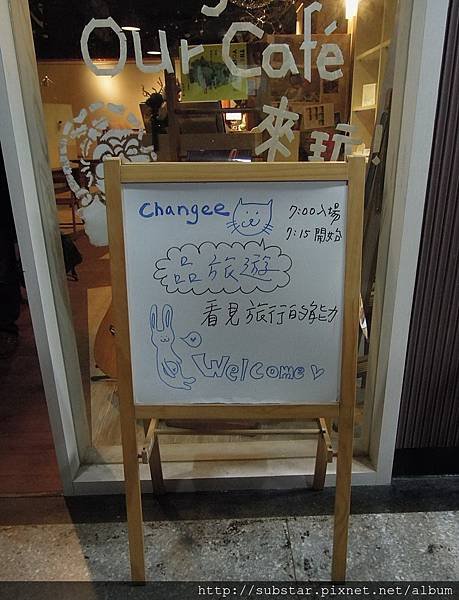 Our Café
來玩
Changee
7:00入場
7:15開始
品旅遊
看見旅行的能力
Welcome
http://substar.pixnet.net/album